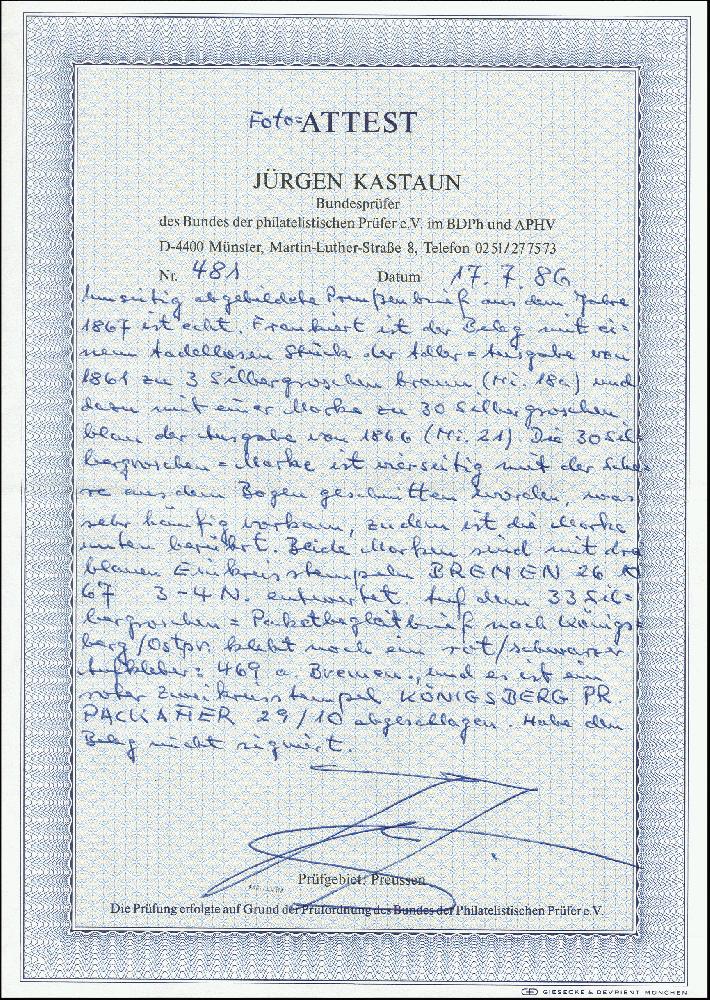 Foto=ATTEST
JÜRGEN KASTAUN
Bundesprüfer
des Bundes der philatelistischen Prüfer e.V. im BDPh und APHV
D-4400 Münster, Martin-Luther-Straße 8, Telefon 0251/277573
Nr. 481 Datum 17. 7. 86
Umseitig abgebildete Preußenbrief aus dem Jahre
1867 ist echt. Frankiert ist der Beleg mit ei=
nem tadellosen Stück der Adler=Ausgabe von
1861 zu 3 Silbergroschen braun (Mi. 18a) und
dazu mit einer Marke zu 30 Silbergroschen
blau der Ausgabe von 1866 (Mi. 21). Die 30 Sil=
bergroschen=Marke ist vierseitig mit der Sche=
re aus dem Bogen geschnitten worden, was
sehr häufig vorkam, zudem ist die Marke
unten berührt. Beide Marken sind mit drei
blauen Einkreisstempeln BREMEN 26 10
67 3-4 N. entwertet. Auf dem 33 Sil=
bergroschen=Paketbegleitbrief nach Königs=
berg/Ostpr. klebt noch ein rot/schwarzer
Aufkleber: 469 a. Bremen., und es ist ein
roter Zweikreisstempel KÖNIGSBERG PR.
PACKAMER 29/10 abgeschlagen. Habe den
Beleg nicht signiert.
Prüfgebiet: Preussen
Die Prüfung erfolgte auf Grund der Prüfordnung des Bundes der Philatelistischen Prüfer e.V.
GIESECKE & DEVRIENT MÜNCHEN